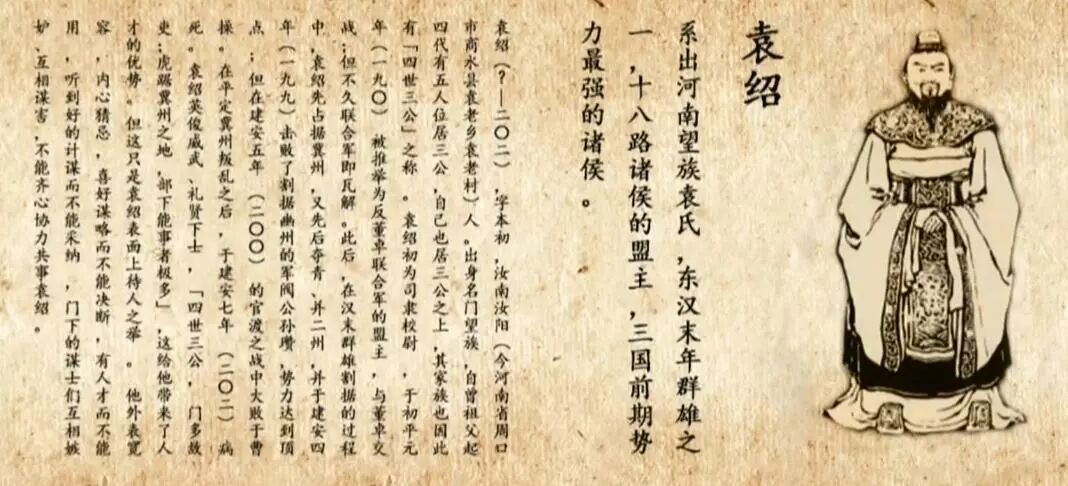 袁绍
系出河南望族袁氏，东汉末年群雄之
一，十八路诸侯的盟主，三国前期势
力最强的诸侯。
袁绍（？—二〇二），字本初，汝南汝阳（今河南省周口
市商水县袁老乡袁老村）人。出身名门望族，自曾祖父起
四代有五人位居三公，自己也居三公之上，其家族也因此
有「四世三公」之称。袁绍初为司隶校尉，于初平元
年（一九〇）被推举为反董卓联合军的盟主，与董卓交
战；但不久联合军即瓦解。此后，在汉末群雄割据的过程
中，袁绍先占据冀州，又先后夺青、并二州，并于建安四
年（一九九）击败了割据幽州的军阀公孙瓒，势力达到顶
点；但在建安五年（二〇〇）的官渡之战中大败于曹
操。在平定冀州叛乱之后，于建安七年（二〇二）病
死。袁绍英俊威武、礼贤下士，「四世三公，门多故
吏；虎踞冀州之地，部下能事者极多」，这给他带来了人
才的优势。但这只是袁绍表面上待人之举。他外表宽
容，内心猜忌，喜好谋略而不能决断，有人才而不能
用，听到好的计谋而不能采纳，门下的谋士们互相嫉
妒、互相谋害，不能齐心协力共事袁绍。